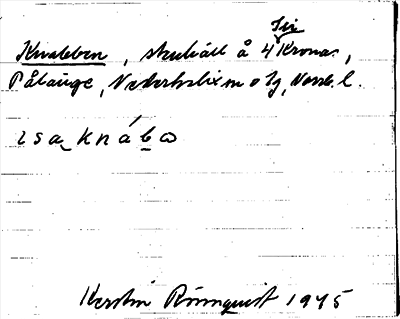 Knabben, skuhäll å 4 Kronor,
Pålänge, Nederkalix sn o tg, Norrb. l.
isa knába
Kerstin Rönnquist 1945